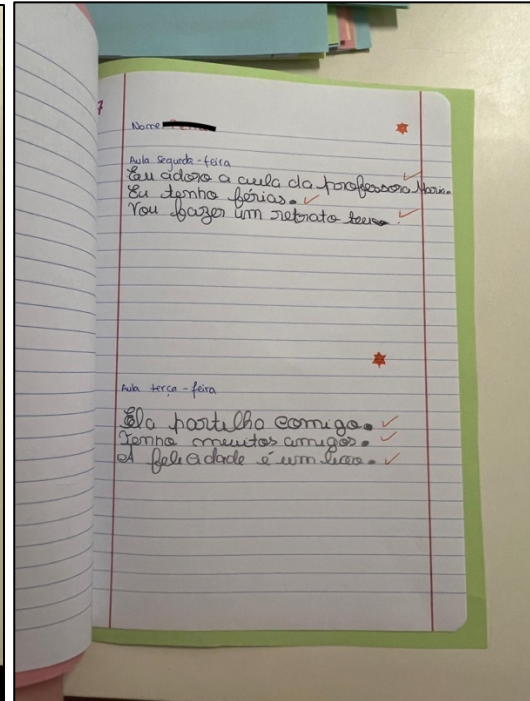 7
Nome
Aula segunda-feira
Eu adoro a aula da professora Maria.
Eu tenho férias.
Vou fazer um retrato teu.
Aula terça-feira
Ela partilha comigo.
Tenho muitos amigos.
A felicidade é um